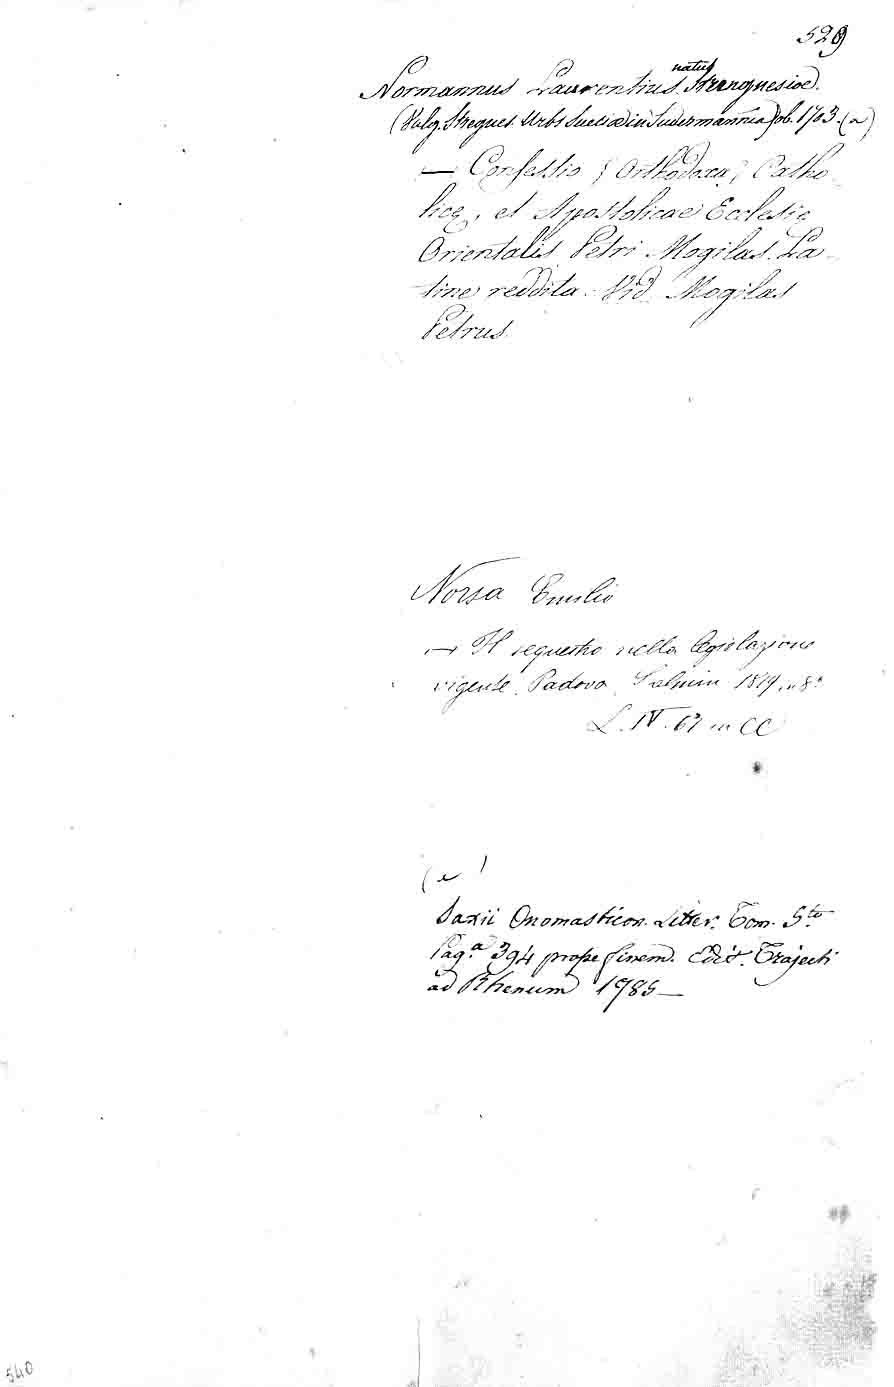 529
Normannus Laurentius natus Strengnesiae.
(Vulg. Stregnes. Urbs Sueciae in Sudermannia) ob. 1703. (a)
— Confessio (Orthodoxa) Catho-
licę, et Apostolicae Ecclesię
Orientalis Petri Mogilas. La-
tine reddita. Vid. Mogilas
Petrus.
Norsa Emilio
— Il sequestro nella legislazione
vigente. Padova, Salmin 1879 in 8°
L. IV. 67 in CC
(a)
Saxii Onomasticon. Litter. Tom. 5.to
Pag.a 394 prope finem. Edit. Trajecti
ad Rhenum 1785 —
540